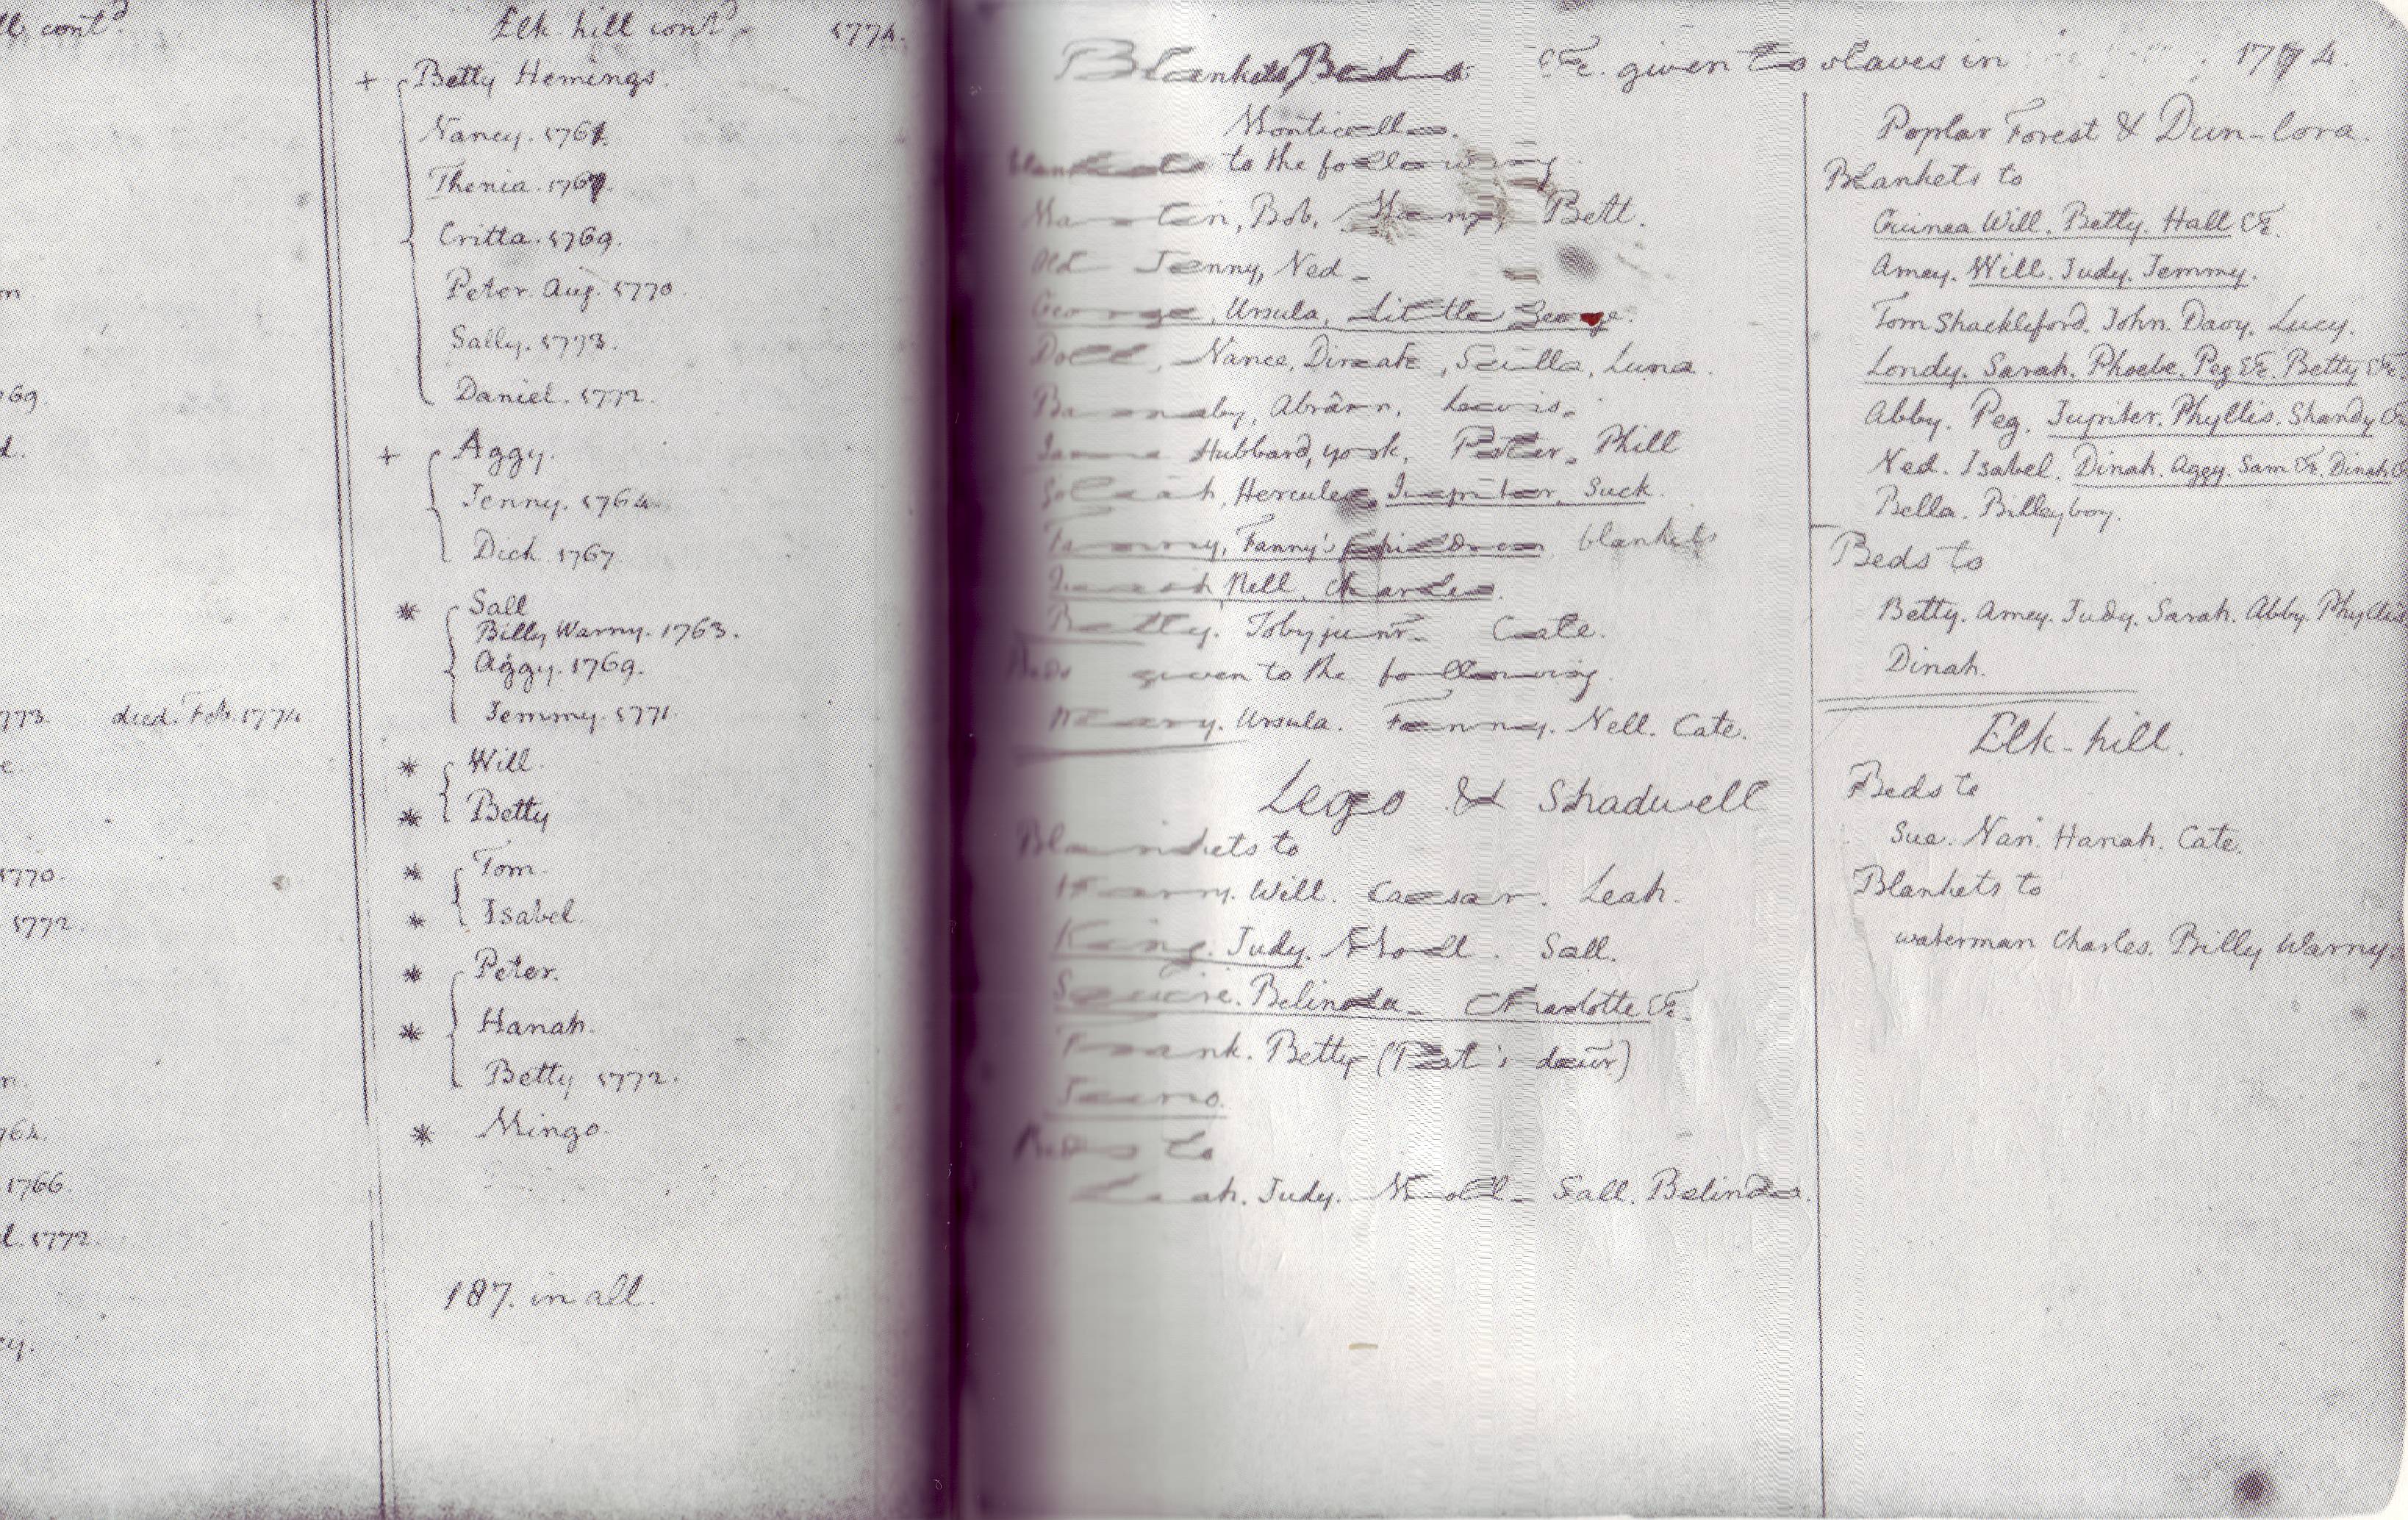 ll cont.d
m
69.
d.
773. died. Feb. 1774
e.
1770.
1772.
n.
764.
1766.
l. 1772.
cy.
Elk-hill cont.d 1774.
+ Betty Hemings.
Nancy. 1761.
Thenia. 1767.
Critta. 1769.
Peter. Aug. 1770.
Sally. 1773.
Daniel. 1772.
+ Aggy.
Jenny. 1764.
Dick. 1767
* Sall
Billy Warny. 1763.
Aggy. 1769.
Jemmy. 1771.
* Will.
* Betty
* Tom.
* Isabel.
* Peter.
* Hanah.
Betty 1772.
* Mingo.
187. in all.
Blankets, Beds &c. given to slaves in 1774.
Monticello.
blankets to the following
Martin, Bob, Mary, Bett.
Old Jenny, Ned
George, Ursula, Little George.
Doll, Nance, Dinah, Scilla, Luna.
Barnaby, Abram, Lewis.
James Hubbard, york, Peter, Phill
Goliah, Hercules, Jupiter, Suck.
Fanny, Fanny's children blankets
Nell, Charles.
Betty. Toby junr. Cate.
Beds given to the following
Mary. Ursula. Fanny. Nell. Cate.
Lego & Shadwell
Blankets to
Harry. Will. Caesar. Leah.
King. Judy. Moll. Sall.
Squire. Belinda. Charlotte &c.
Frank. Betty (Pat's daur.)
Juno.
Beds to
Leah. Judy. Moll. Sall. Belinda.
Poplar Forest & Dun-lora.
Blankets to
Guinea Will. Betty. Hall &c.
Amey. Will. Judy. Jemmy.
Tom Shackleford. John. Davy. Lucy.
Londy. Sarah. Phoebe. Peg &c. Betty &c.
Abby. Peg. Jupiter. Phyllis. Shandy
Ned. Isabel. Dinah. Aggy. Sam &c. Dinah
Bella. Billy boy.
Beds to
Betty. Amey. Judy. Sarah. Abby. Phyllis
Dinah.
Elk-hill.
Beds to
Sue. Nan. Hanah. Cate.
Blankets to
waterman Charles. Billy Warny.